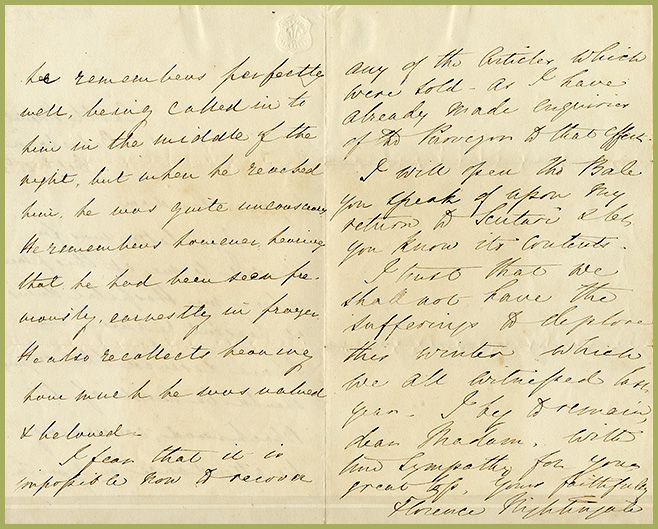 he remembers perfectly
well, being called in to
him in the middle of the
night, but when he reached
him, he was quite unconscious
He remembers however, hearing
that he had been seen pre-
viously, earnestly in prayer
He also recollects hearing
how much he was valued
& beloved-
I fear that it is
impossible now to recover
any of the Articles which
were sold - as I have
already made enquiries
of the Purveyor to that effect.
I will open the Bale
you speak of upon my
return to Scutari & let
you know its contents.
I trust that we
shall not have the
sufferings to deplore
this winter which
we all witnessed last
year. I beg to remain,
dear Madam, with
true Sympathy for your
great loss, Yours faithfully
Florence Nightingale